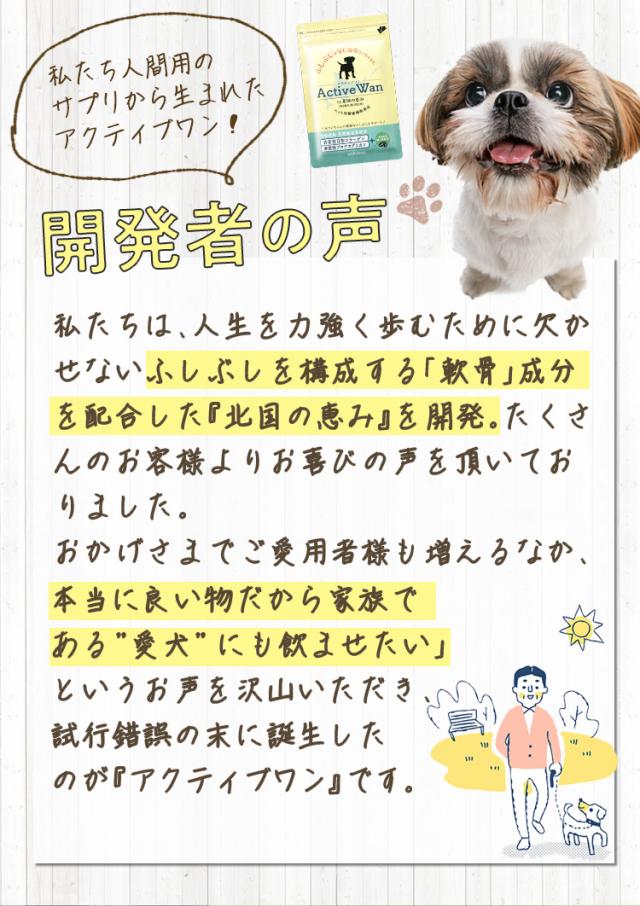 私たち人間用の
サプリから生まれた
アクティブワン!
ActiveWan
開発者の声
私たちは、人生を力強く歩むために欠か
せないふしぶしを構成する「軟骨」成分
を配合した『北国の恵み』を開発。たくさ
んのお客様よりお喜びの声を頂いてお
りました。
おかげさまでご愛用者様も増えるなか、
本当に良い物だから家族で
ある”愛犬”にも飲ませたい」
というお声を沢山いただき、
試行錯誤の末に誕生した
のが『アクティブワン』です。